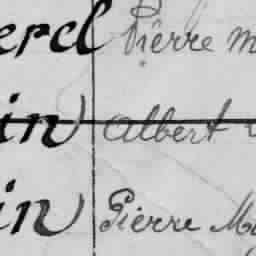 ercl Pierre M
in Albert
in Pierre Ma